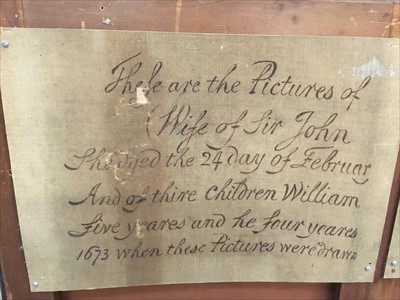 These are the Pictures of
(Wife of Sir John
She dyed the 24 day of Februar
And of thire Children William
five yeares and he four yeares
1673 when these Pictures were drawn